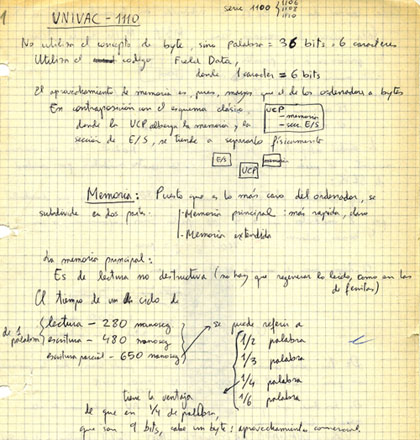 1
UNIVAC - 1110
serie 1100 { 1106
1108
1110
No utiliza el concepto de byte, sino palabra = 36 bits = 6 caracteres
Utiliza el código Field Data,
donde 1 caracter = 6 bits
El aprovechamiento de memoria es, pues, mayor que el de los ordenadores a bytes
En contraposición con el esquema clásico,
UCP
- memoria
- secc. E/S
donde la UCP alberga la memoria y la
sección de E/S, se tiende a separarlo físicamente
E/S
UCP
memoria
Memoria: Puesto que es lo más caro del ordenador, se
subdivide en dos
· Memoria principal: más rápida, claro
· Memoria extendida
La memoria principal:
Es de lectura no destructiva (no hay que regenerar lo leído, como en las
de ferritas)
El tiempo de un ciclo de
de 1
palabra
lectura - 280 nanoseg
escritura - 480 nanoseg
escritura parcial - 650 nanoseg
se puede referir a
1/2 palabra
1/3 palabra
1/4 palabra
1/6 palabra
tiene la ventaja
de que en 1/4 de palabra,
que son 9 bits, cabe un byte: aprovechamiento comercial.